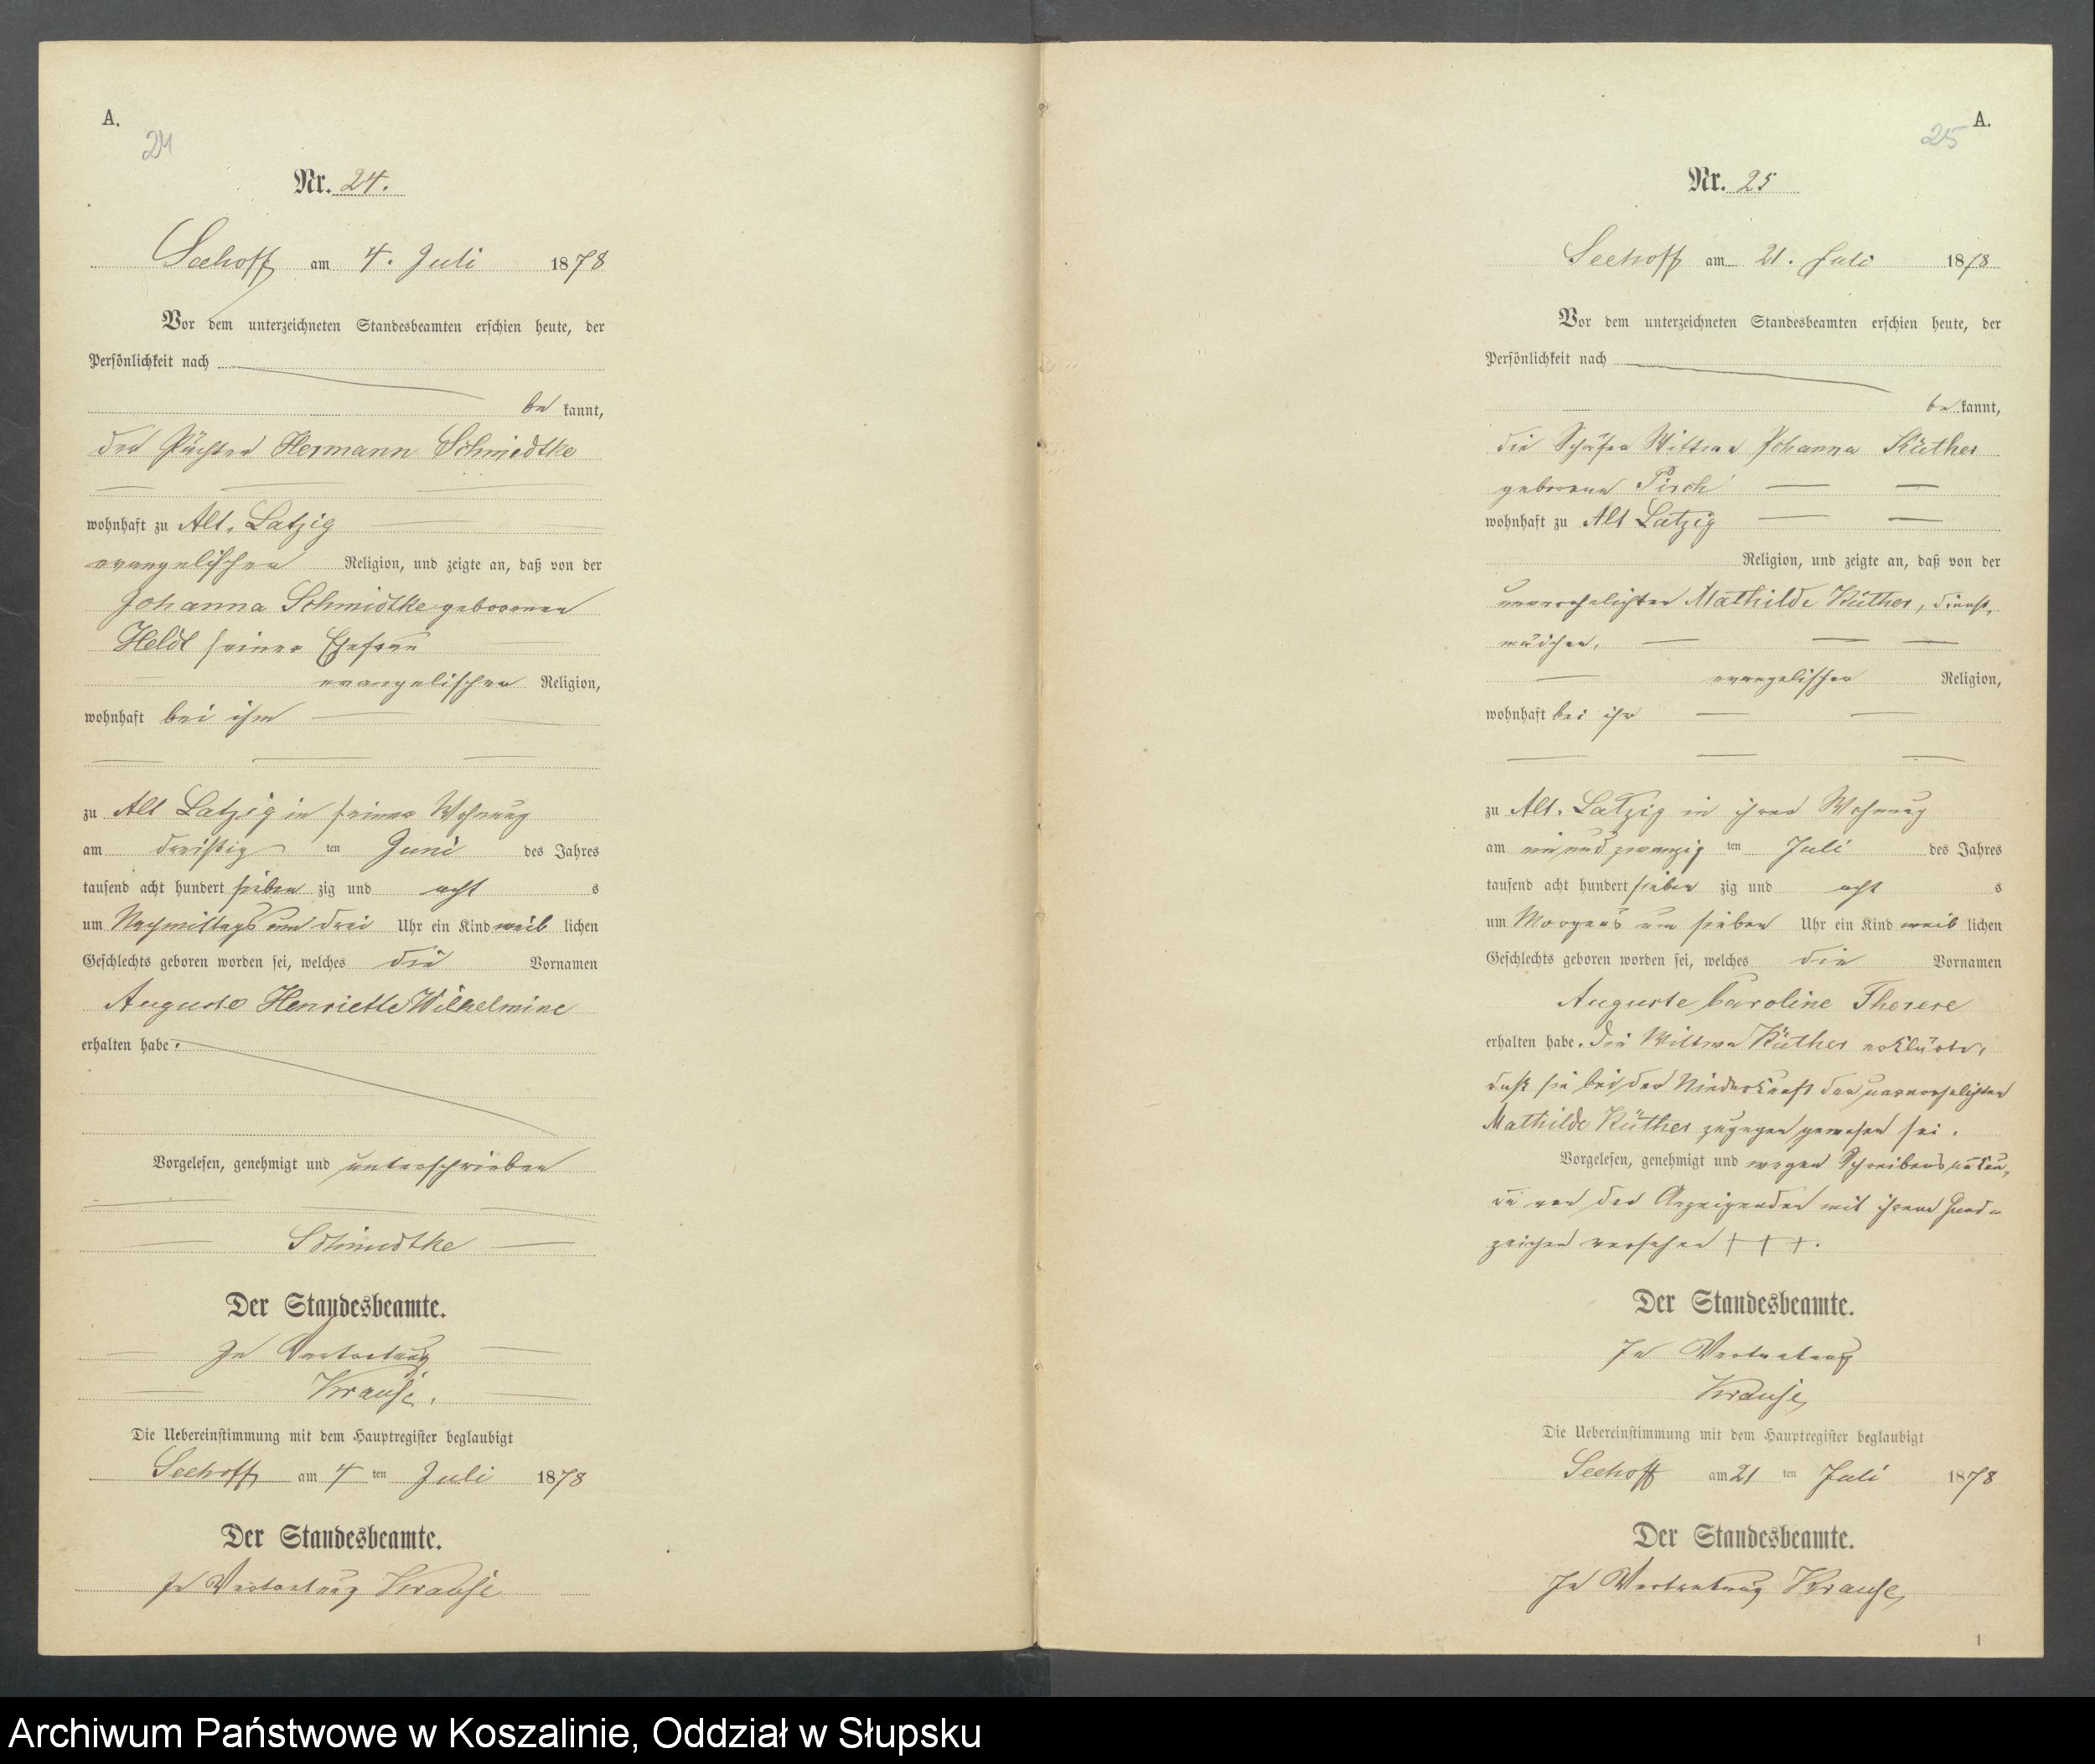 A.
24
Nr. 24.
Seehoff am 4. Juli 1878
Vor dem unterzeichneten Standesbeamten erschien heute, der
Persönlichkeit nach
be kannt,
der Pächter Hermann Schmidtke
wohnhaft zu Alt. Latzig
evangelischer Religion, und zeigte an, daß von der
Johanna Schmidtke geborenen
Heldt seiner Ehefrau
evangelischer Religion,
wohnhaft bei ihm
zu Alt Latzig in seiner Wohnung
am dreißig ten Juni des Jahres
tausend acht hundert sieben zig und acht s
um Nachmittags um drei Uhr ein Kind weib lichen
Geschlechts geboren worden sei, welches die Vornamen
Auguste Henriette Wilhelmine
erhalten habe.
Vorgelesen, genehmigt und unterschrieben
Schmidtke
Der Standesbeamte.
In Vertretung
Krause.
Die Uebereinstimmung mit dem Hauptregister beglaubigt
Seehoff am 4 ten Juli 1878
Der Standesbeamte.
In Vertretung Krause
A.
25
Nr. 25
Seehoff am 21. Juli 1878
Vor dem unterzeichneten Standesbeamten erschien heute, der
Persönlichkeit nach
be kannt,
die Schäfer Wittwe Johanna Küther
geborene Pirch
wohnhaft zu Alt Latzig
Religion, und zeigte an, daß von der
unverehelichten Mathilde Küther, Dienst-
mädchen,
evangelischer Religion,
wohnhaft bei ihr
zu Alt. Latzig in ihrer Wohnung
am ein und zwanzig ten Juli des Jahres
tausend acht hundert sieben zig und acht s
um Morgens um sieben Uhr ein Kind weib lichen
Geschlechts geboren worden sei, welches die Vornamen
Auguste Caroline Therese
erhalten habe. Die Wittwe Küther erklärte,
daß sie bei der Niederkunft der unverehelichten
Mathilde Küther zugegen gewesen sei.
Vorgelesen, genehmigt und wegen Schreibensunkun-
de von der Anzeigenden mit ihrem Hand-
zeichen versehen + + +.
Der Standesbeamte.
In Vertretung
Krause
Die Uebereinstimmung mit dem Hauptregister beglaubigt
Seehoff am 21 ten Juli 1878
Der Standesbeamte.
In Vertretung Krause
1
Archiwum Państwowe w Koszalinie, Oddział w Słupsku